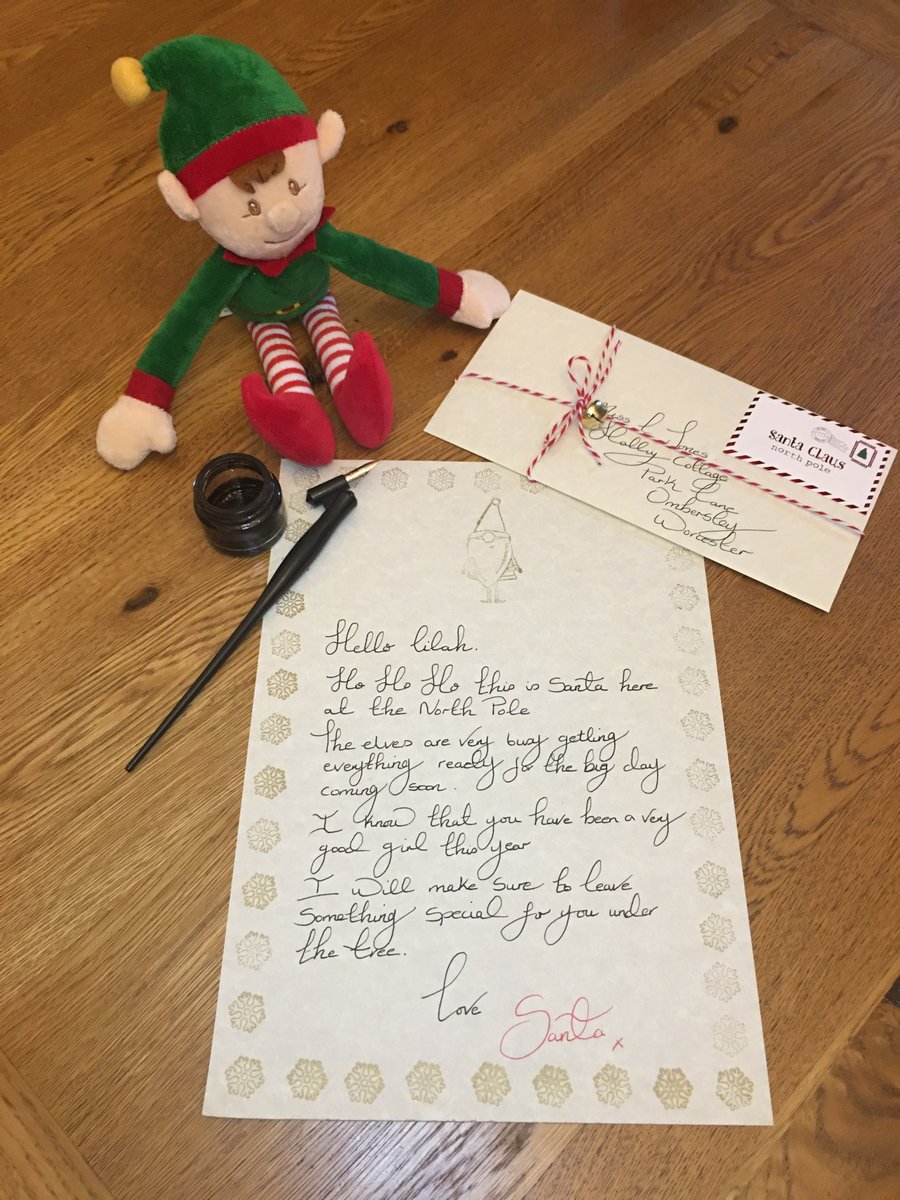 Miss L Jones
Holly Cottage
Park Lane
Ombersley
Worcester
santa claus
north pole
Hello lilah.
Ho Ho Ho this is Santa here
at the North Pole
The elves are very busy getting
eveything ready for the big day
coming soon.
I know that you have been a very
good girl this year
I will make sure to leave
something special for you under
the tree.
Love
Santa x